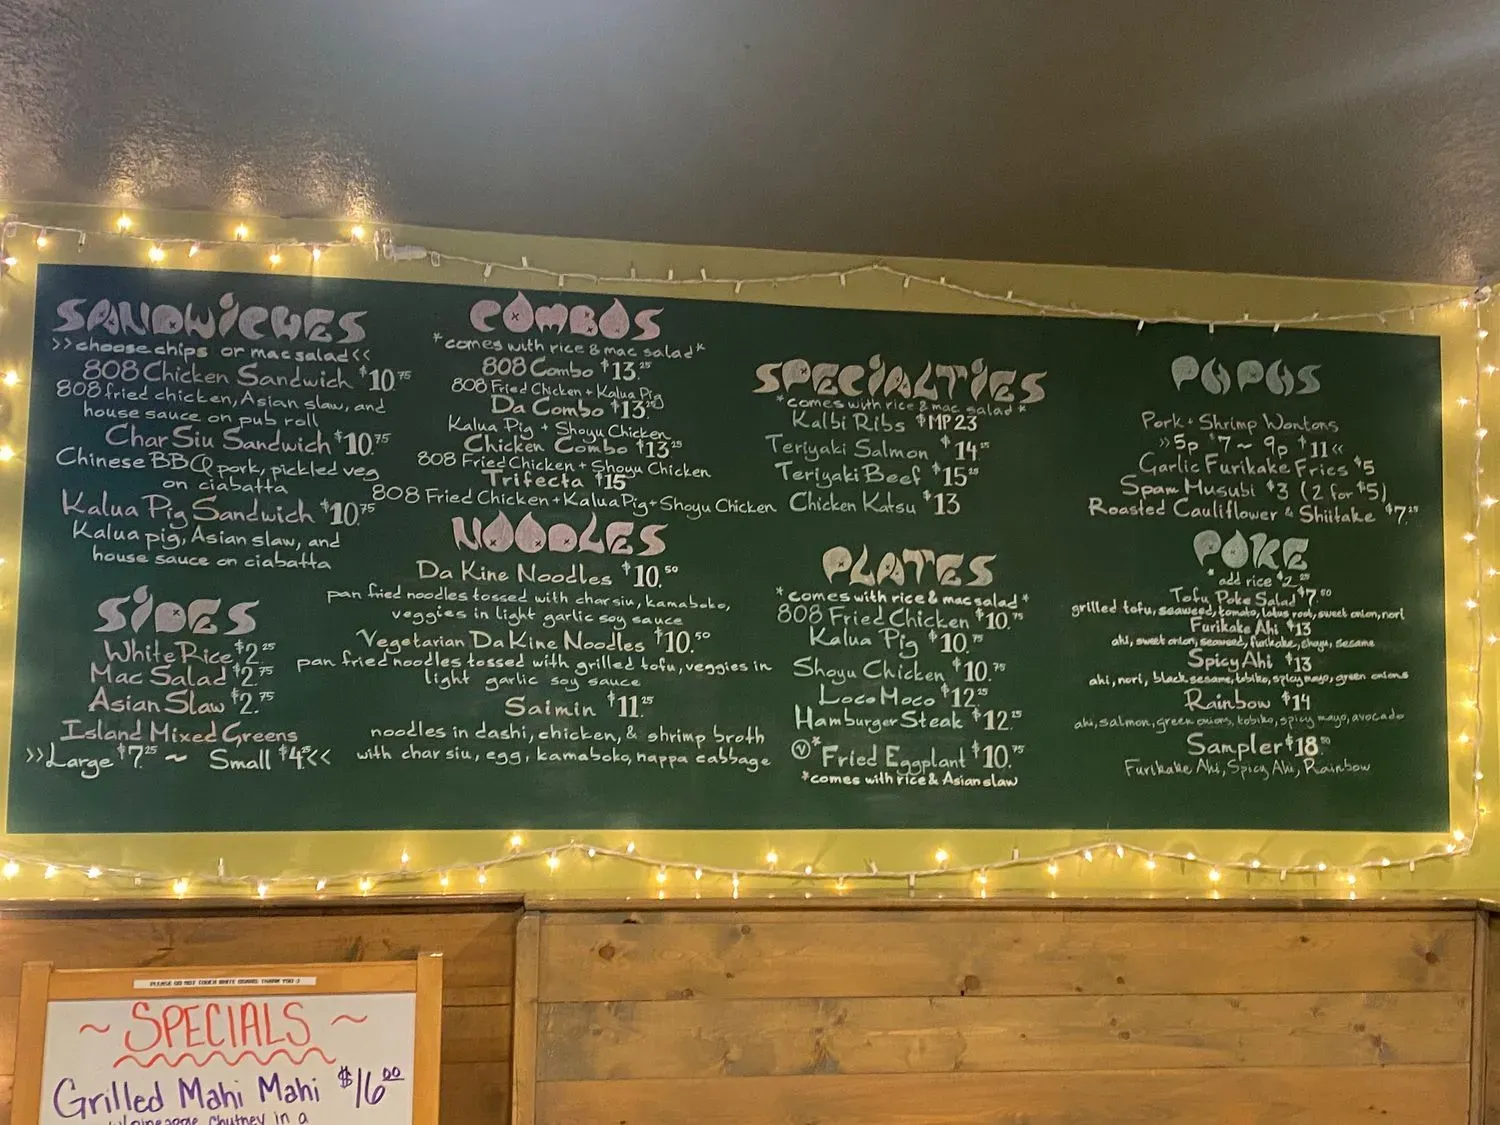 SANDWICHES
>>choose chips or mac salad<<
808 Chicken Sandwich $10.75
808 fried chicken, Asian slaw, and
house sauce on pub roll
Char Siu Sandwich $10.75
Chinese BBQ pork, pickled veg
on ciabatta
Kalua Pig Sandwich $10.75
Kalua pig, Asian slaw, and
house sauce on ciabatta
SIDES
White Rice $2.25
Mac Salad $2.75
Asian Slaw $2.75
Island Mixed Greens
>>Large $7.25 ~ Small $4.25<<
COMBOS
*comes with rice & mac salad*
808 Combo $13.25
808 Fried Chicken + Kalua Pig
Da Combo $13.25
Kalua Pig + Shoyu Chicken
Chicken Combo $13.25
808 Fried Chicken + Shoyu Chicken
Trifecta $15
808 Fried Chicken + Kalua Pig + Shoyu Chicken
NOODLES
Da Kine Noodles $10.50
pan fried noodles tossed with char siu, kamaboko,
veggies in light garlic soy sauce
Vegetarian Da Kine Noodles $10.50
pan fried noodles tossed with grilled tofu, veggies in
light garlic soy sauce
Saimin $11.25
noodles in dashi, chicken, & shrimp broth
with char siu, egg, kamaboko, nappa cabbage
SPECIALTIES
*comes with rice & mac salad*
Kalbi Ribs $MP 23
Teriyaki Salmon $14.25
Teriyaki Beef $15.25
Chicken Katsu $13
PLATES
*comes with rice & mac salad*
808 Fried Chicken $10.75
Kalua Pig $10.75
Shoyu Chicken $10.75
Loco Moco $12.25
Hamburger Steak $12.25
(V)* Fried Eggplant $10.75
*comes with rice & Asian slaw
PUPUS
Pork + Shrimp Wontons
>>5p $7 ~ 9p $11<<
Garlic Furikake Fries $5
Spam Musubi $3 (2 for $5)
Roasted Cauliflower & Shiitake $7.25
POKE
*add rice $2.25
Tofu Poke Salad $7.50
grilled tofu, seaweed, tomato, lotus root, sweet onion, nori
Furikake Ahi $13
ahi, sweet onion, seaweed, furikake, shoyu, sesame
Spicy Ahi $13
ahi, nori, black sesame, tobiko, spicy mayo, green onions
Rainbow $14
ahi, salmon, green onions, tobiko, spicy mayo, avocado
Sampler $18.50
Furikake Ahi, Spicy Ahi, Rainbow
PLEASE DO NOT TOUCH WHITE BOARD THANK YOU :)
~ SPECIALS ~
Grilled Mahi Mahi $16.00
w/pineapple chutney in a